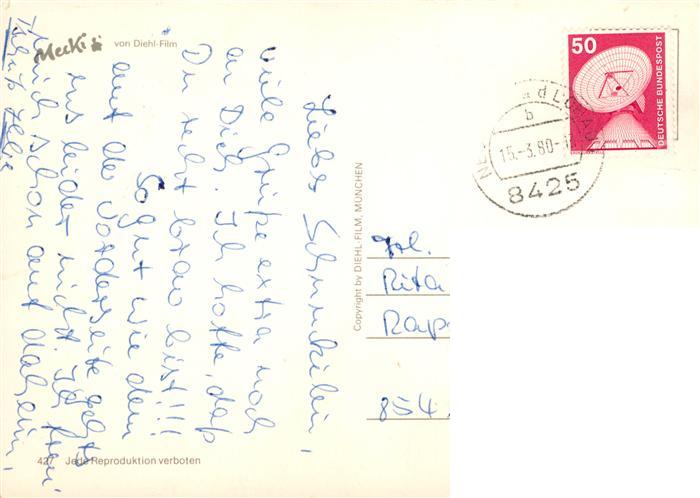 Mecki
von Diehl-Film
50
DEUTSCHE BUNDESPOST
a d
b
15.-3.80-
8425
Liebes Schnuckilein,
viele Grüße extra noch
an Dich. Ich hoffe, daß
Du recht brav bist!!!
So gut wie dem
auf der Vorderseite geht
es leider nicht. Ich freu
mich schon auf daheim,
Copyright by DIEHL-FILM, MÜNCHEN
Frl.
Rita
Rap
854
427 Jede Reproduktion verboten